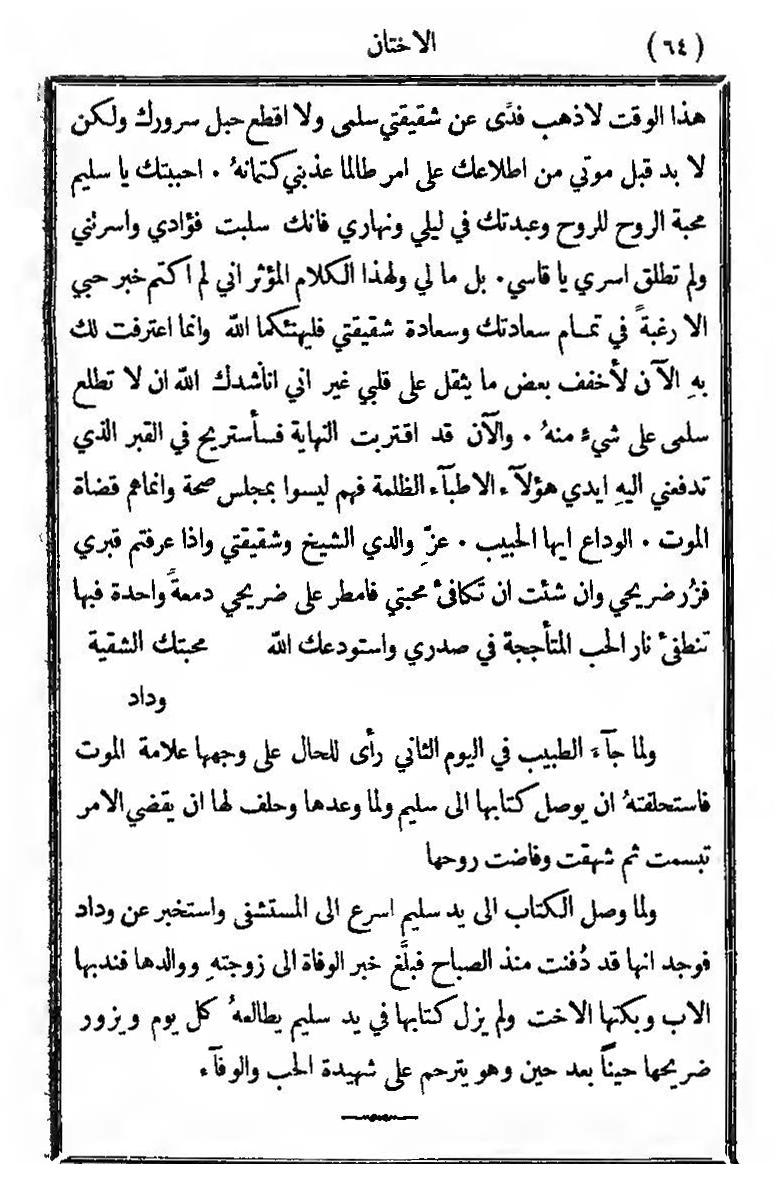 (٦٤) الاختان
هذا الوقت لاذهب فدًى عن شقيقتي سلمى ولا اقطع حبل سرورك ولكن
لا بد قبل موتي من اطلاعك على امر طالما عذبني كتمانهُ ٠ احببتك يا سليم
محبة الروح للروح وعبدتك في ليلي ونهاري فانك سلبت فؤادي واسرتني
ولم تطلق اسري يا قاسي ٠ بل ما لي ولهذا الكلام المؤثر اني لم اكتم خبر حبي
الا رغبةً في تمام سعادتك وسعادة شقيقتي فليهنئكما الله وانما اعترفت لك
بهِ الآن لأخفف بعض ما يثقل على قلبي غير اني اناشدك الله ان لا تطلع
سلمى على شيءٍ منهُ ٠ والآن قد اقتربت النهاية فسأستريح في القبر الذي
تدفعني اليهِ ايدي هؤلآء الاطبآء الظلمة فهم ليسوا بمجلس صحة وانما هم قضاة
الموت ٠ الوداع ايها الحبيب ٠ عزِّ والدي الشيخ وشقيقتي واذا عرفتم قبري
فزُر ضريحي وان شئت ان تكافئ محبتي فامطر على ضريحي دمعةً واحدة فيها
تنطفئ نار الحب المتأججة في صدري واستودعك الله محبتك الشقية
وداد
ولما جآء الطبيب في اليوم الثاني رأى للحال على وجهها علامة الموت
فاستحلفتهُ ان يوصل كتابها الى سليم ولما وعدها وحلف لها ان يقضي الامر
تبسمت ثم شهقت وفاضت روحها
ولما وصل الكتاب الى يد سليم اسرع الى المستشفى واستخبر عن وداد
فوجد انها قد دُفنت منذ الصباح فبلَّغ خبر الوفاة الى زوجتهِ ووالدها فندبها
الاب وبكتها الاخت ولم يزل كتابها في يد سليم يطالعهُ كل يوم ويزور
ضريحها حينًا بعد حين وهو يترحم على شهيدة الحب والوفآء